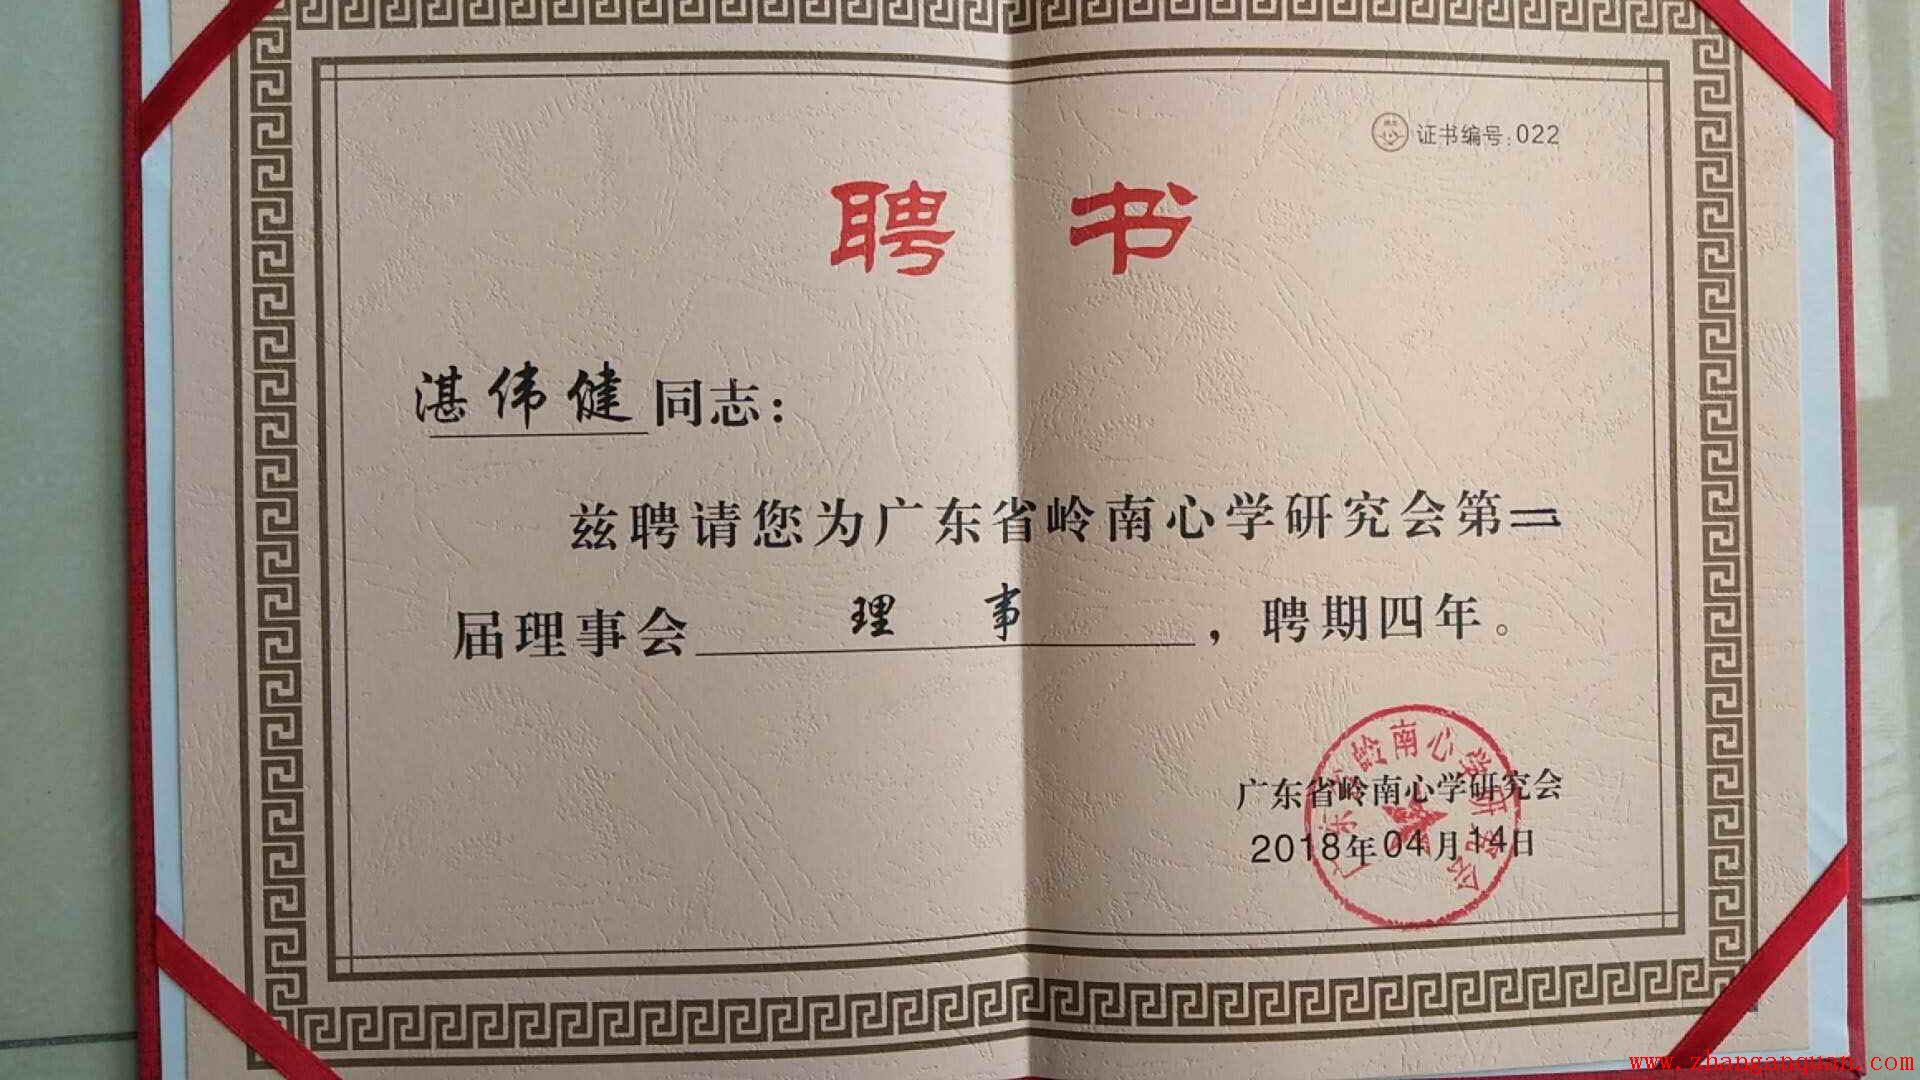 证书编号：022
聘 书
湛伟健同志：
兹聘请您为广东省岭南心学研究会第二
届理事会 理 事 ，聘期四年。
广东省岭南心学研究会
2018年04月14日
广东省岭南心学研究会
www.zhanganquan.com